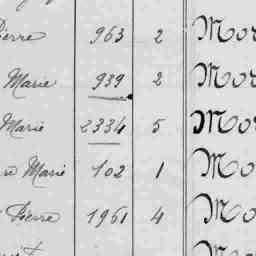 Pierre 963 2 Mor
Marie 939 2 Mor
Marie 2334 5 Mor
Marie 102 1 Mo
Pierre 1961 4 Mo